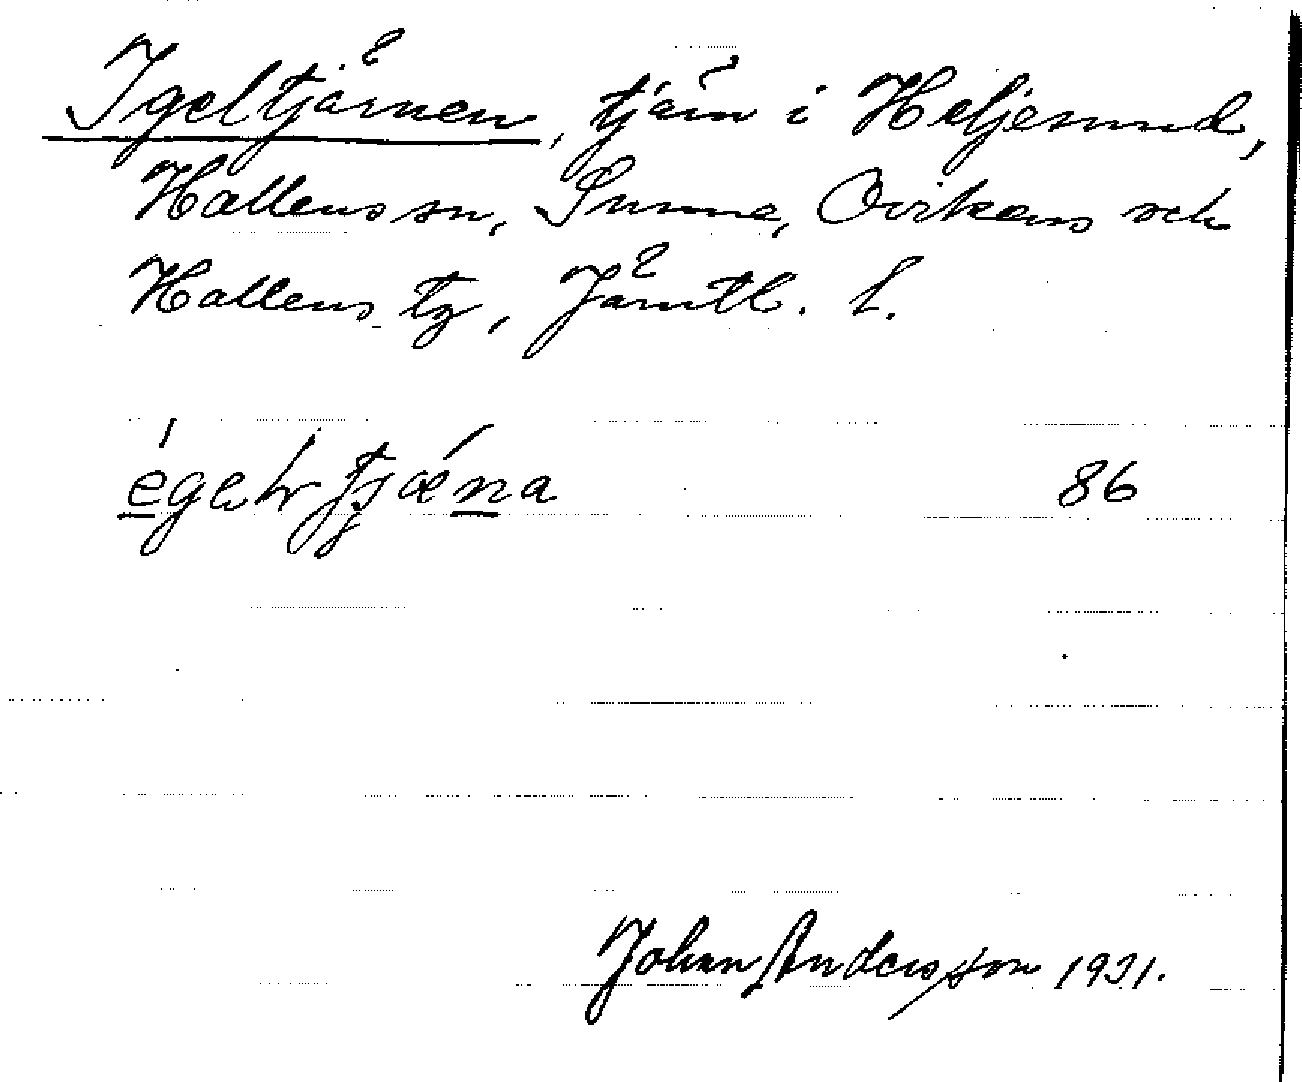 Igeltjärnen, tjärn i Heljesund,
Hallens sn, Sunne, Ovikens och
Hallens tg, Jämtl. l.
86
Johan Andersson 1931.